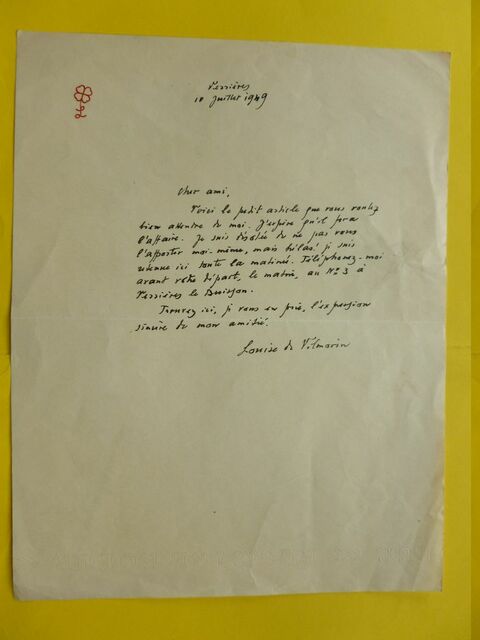 Verrières
10 juillet 1949
Cher ami,
Voici le petit article que vous voulez
bien attendre de moi. J'espère qu'il fera
l'affaire. Je suis désolée de ne pas vous
l'apporter moi-même, mais hélas! je suis
retenue ici toute la matinée. Téléphonez-moi
avant votre départ, le matin, au N° 3 à
Verrières le Buisson.
Trouvez ici, je vous en prie, l'expression
sincère de mon amitié.
Louise de Vilmorin